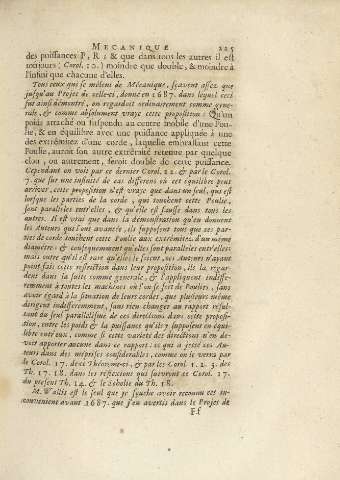 MECANIQUE 225
des puissances P, R ; & que dans tous les autres il est
toujours ( Corol. 10. ) moindre que double, & moindre à
l'infini que chacune d'elles.
Tous ceux qui se mêlent de Mécanique, sçavent assez que
jusqu'au Projet de celle-ci, donné en 1687. dans lequel ceci
fut ainsi démontré, on regardoit ordinairement comme gene-
rale, & comme absolument vraye cette proposition : Qu'un
poids attaché ou suspendu au centre mobile d'une Pou-
lie, & en équilibre avec une puissance appliquée à une
des extrêmitez d'une corde, laquelle embrassant cette
Poulie, auroit son autre extrêmité retenue par quelque
clou, ou autrement, seroit double de cette puissance.
Cependant on voit par ce dernier Corol. 22. & par le Corol.
7. que sur une infinité de cas differens où cet équilibre peut
arriver, cette proposition n'est vraye que dans un seul, qui est
lorsque les parties de la corde, qui touchent cette Poulie,
sont paralleles entr'elles, & qu'elle est fausse dans tous les
autres. Il est vrai que dans la démonstration qu'en donnent
les Auteurs qui l'ont avancée, ils supposent tous que ces par-
ties de corde touchent cette Poulie aux extrêmitez d'un même
diametre, & consequemment qu'elles sont paralleles entr'elles :
mais outre qu'il est rare qu'elles le soient, ces Auteurs n'ayant
point fait cette restriction dans leur proposition, ils la regar-
dent dans la suite comme generale, & l'appliquent indiffe-
remment à toutes les machines où l'on se sert de Poulies, sans
avoir égard à la situation de leurs cordes, que plusieurs même
dirigent indifferemment, sans rien changer au rapport résul-
tant du seul parallelisme de ces directions dans cette proposi-
tion, entre les poids & la puissance qu'ils y supposent en équi-
libre entr'eux, comme si cette varieté des directions n'en de-
voit apporter aucune dans ce rapport : ce qui a jetté ces Au-
teurs dans des méprises considerables, comme on le verra par
le Corol. 17. de ce Théorême-ci, & par les Corol. 1. 2. 3. des
Th. 17. 18. dans les réflexions qui suivront ce Corol. 17.
du present Th. 14. & le Scholie du Th. 18.
M. Wallis est le seul que je sçache avoir reconnu cet in-
convenient avant 1687. que j'en avertis dans le Projet de
Ff